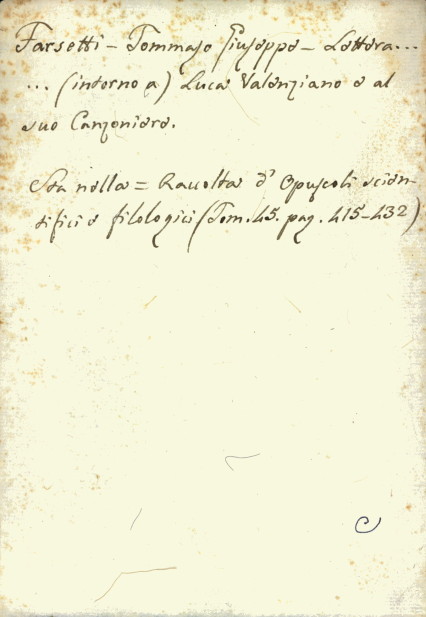 Farsetti – Tommaso Giuseppe – Lettera...
... (intorno a) Luca Valenziano e al
suo Canzoniere.
Sta nella = Raccolta d' Opuscoli scien-
tifici e filologici (Tom. 45. pag. 415–432)